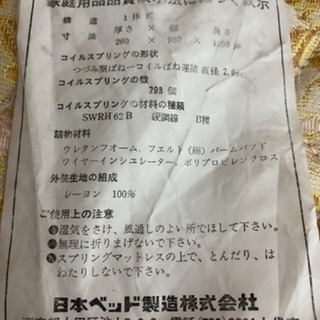 家庭用品品質表示法に基づく表示
構造 1体型
厚さ 幅 長さ
寸法 260 × 930 ×
コイルスプリングの形状
つづみ型ばねーコイルばね連結 直径
コイルスプリングの数
293 個
コイルスプリングの材料の種類
SWRH62B 硬鋼線 B種
詰物材料
ウレタンフオーム、フエルト(綿)パームパツド
ワイヤーインシュレーター、ポリプロピレンクロス
外装生地の組成
レーヨン 100%
ご使用上の注意
湿気をさけ、風通しのよい所でほして下さい。
無理に折りまげないで下さい。
スプリングマットレスの上で、とんだり、は
ねたりしないで下さい。
日本ベッド製造株式会社